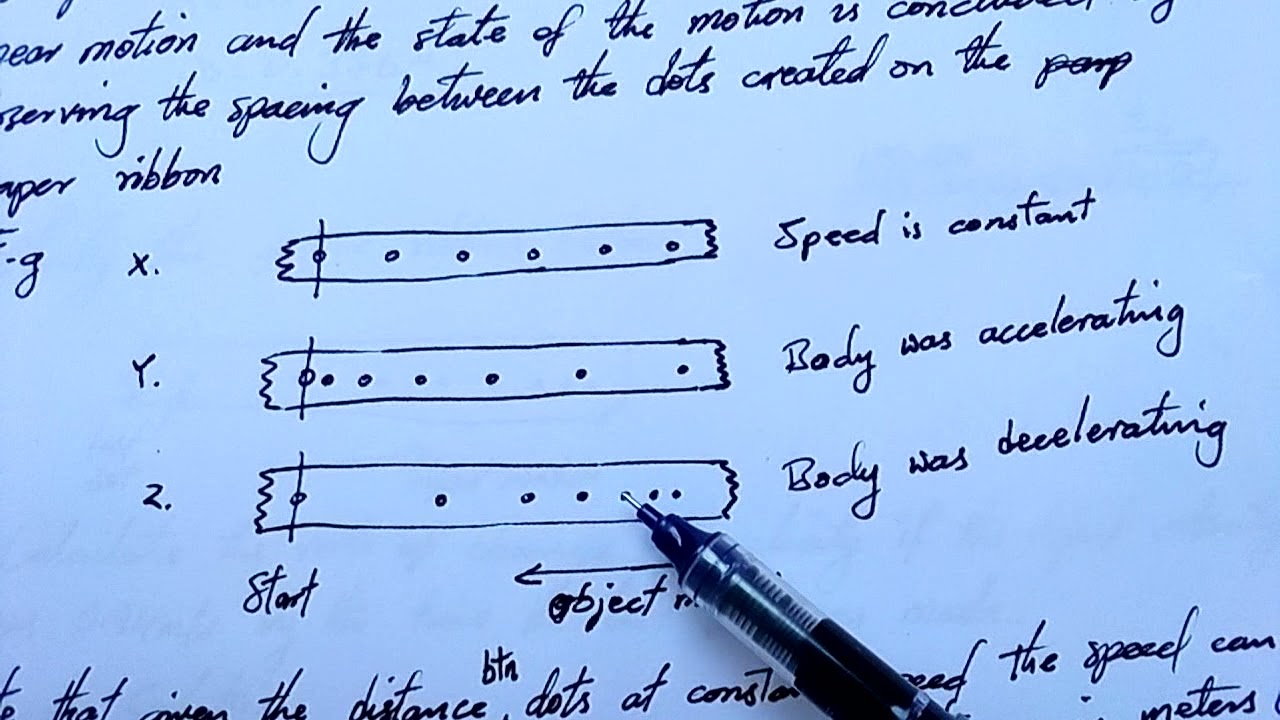 motion and the state of the motion is
the spacing between the dots created on the
ribbon
E.g X. Speed is constant
Y. Body was accelerating
Z. Body was decelerating
Start object
that given the distance btn dots at the speed can
meters